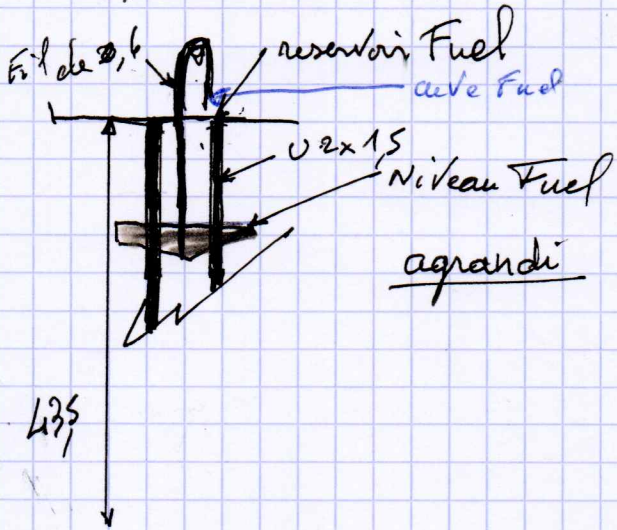 Fil de 0,6
reservoir Fuel
cuve Fuel
U 2x1,5
Niveau Fuel
agrandi
435,